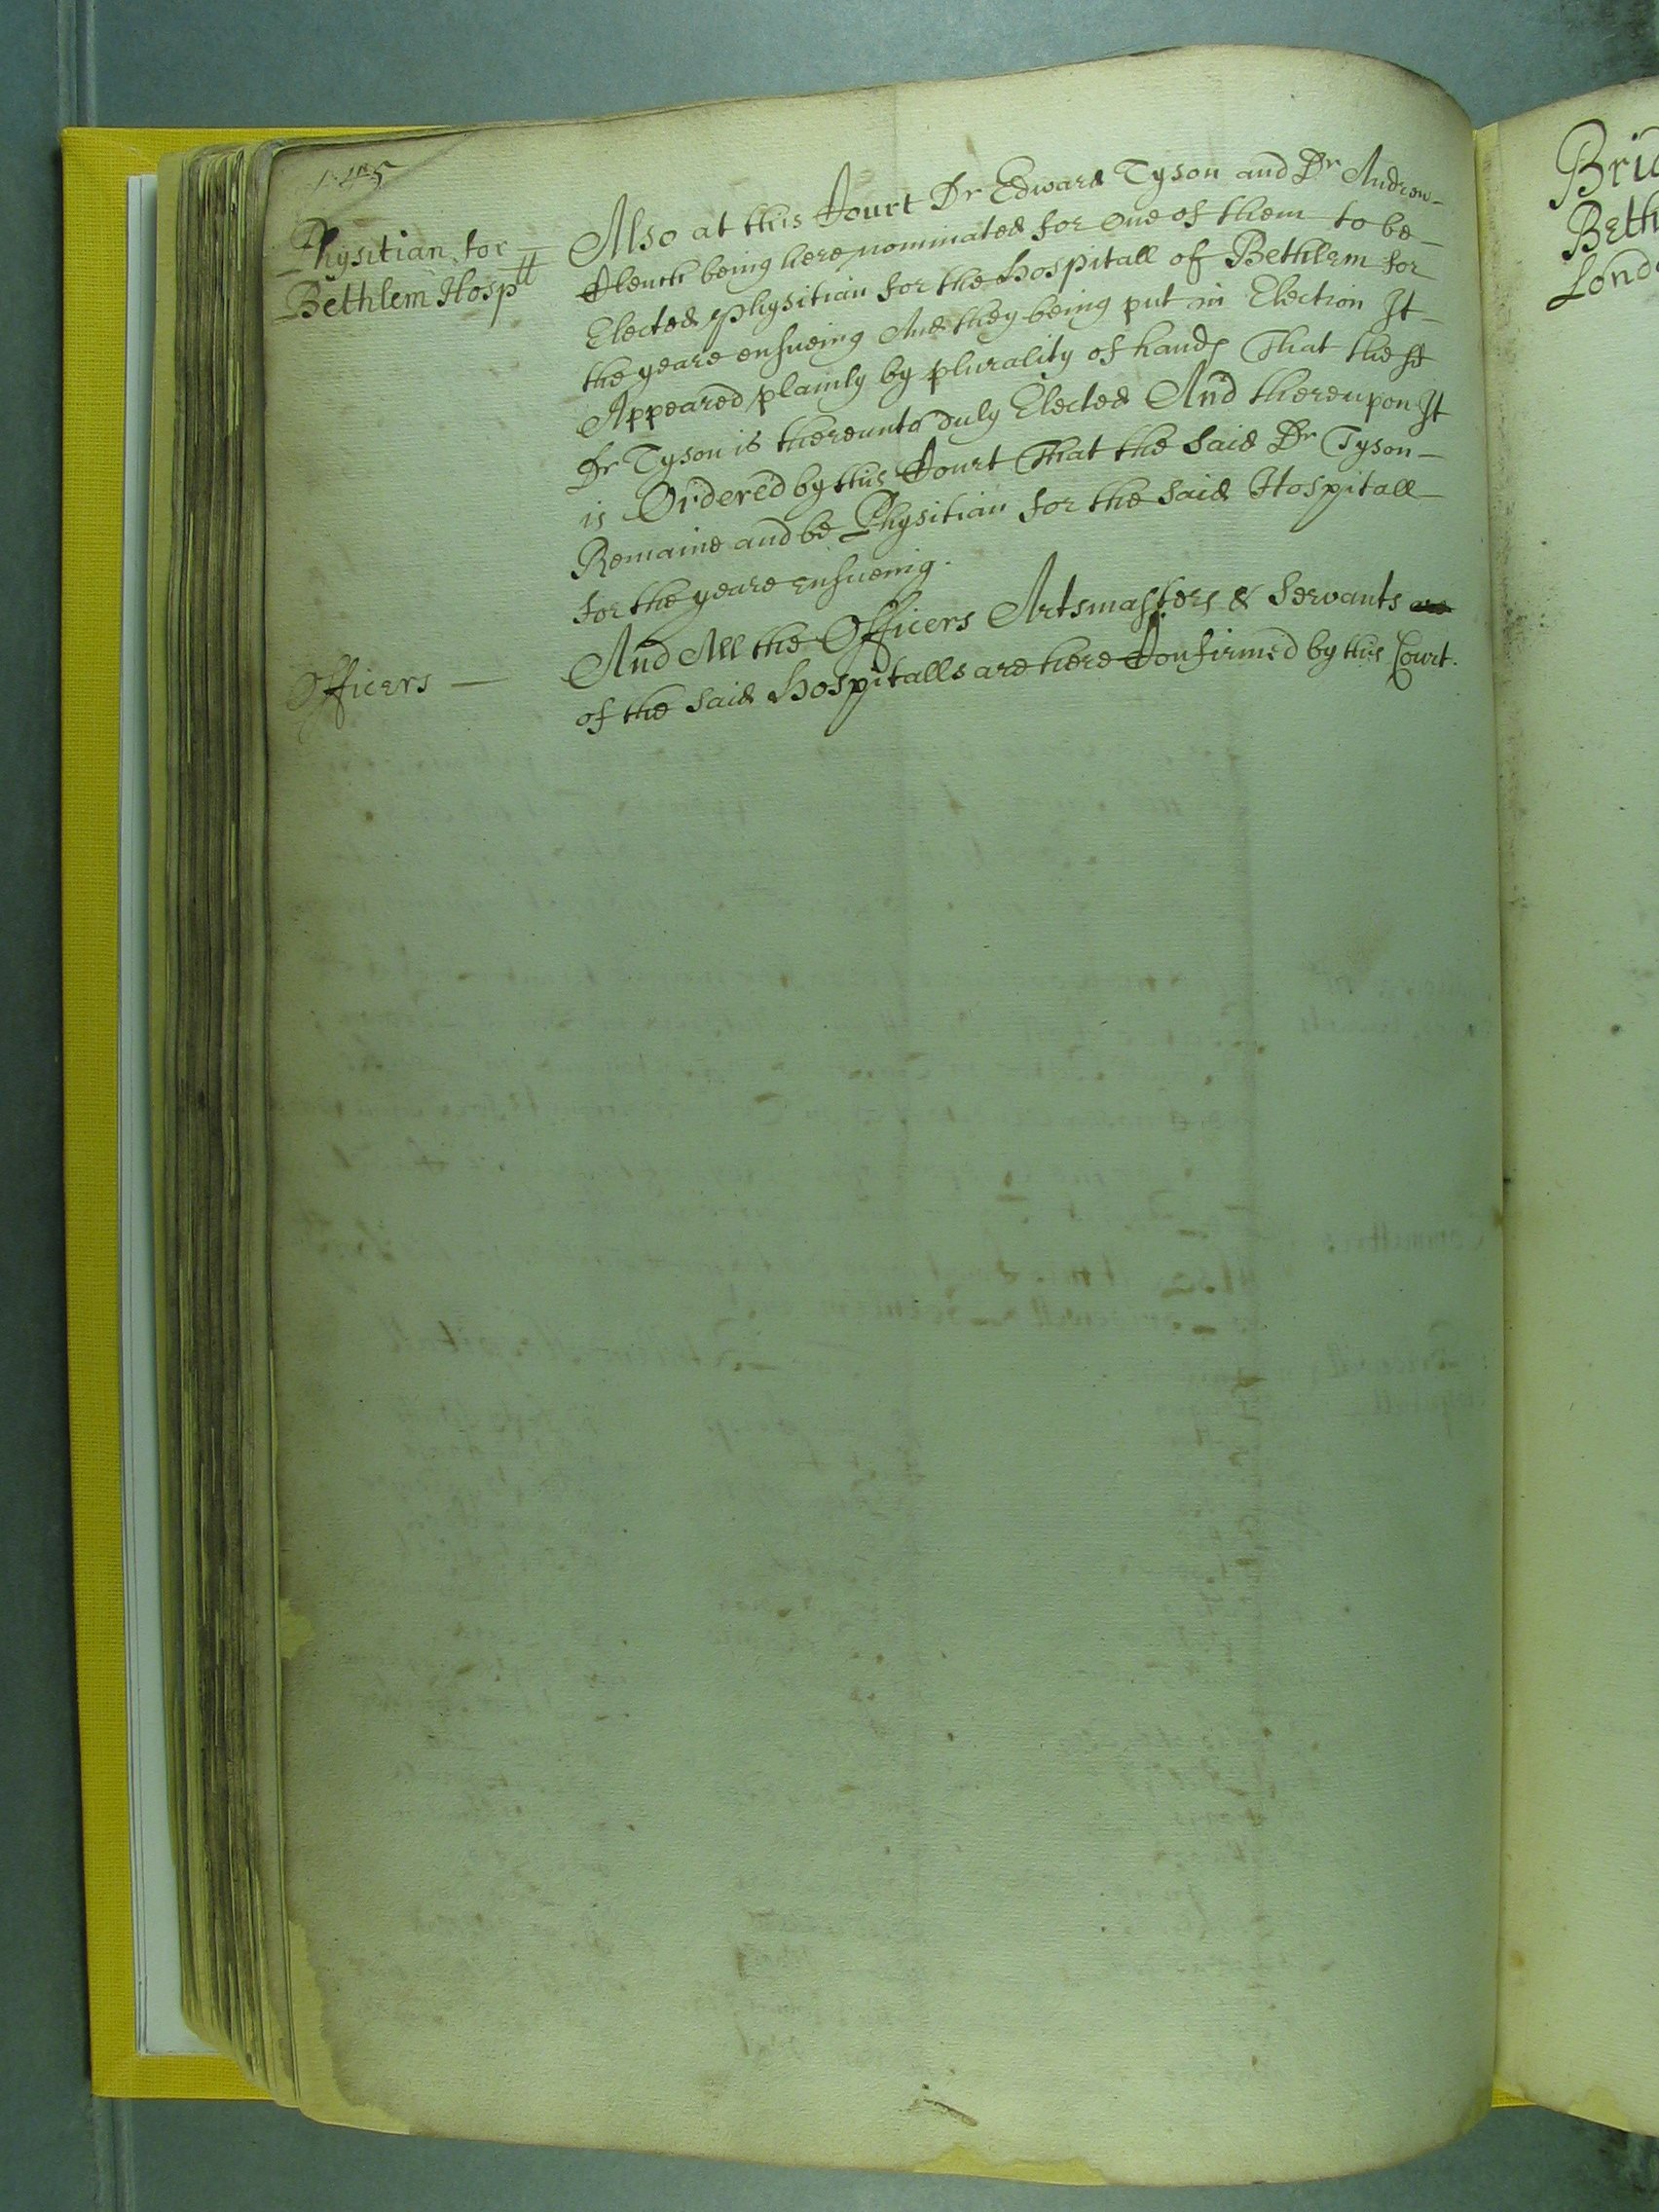 145
Physitian for
Bethlem Hospll
Also at this Court Dr Edward Tyson and Dr Andrew
Clench being here nominated for one of them to be
Elected Physitian for the Hospitall of Bethlem for
the yeare ensueing And they being put in Election It
Appeared plainly by plurality of hands That the sd
Dr Tyson is thereunto duly Elected And thereupon It
is Ordered by this Court That the said Dr Tyson
Remaine and be Physitian for the said Hospitall
for the yeare ensueing.
Officers
And All the Officers Artsmasters & Servants are
of the said Hospitalls are here Confirmed by this Court.
Bri
Beth
Lond